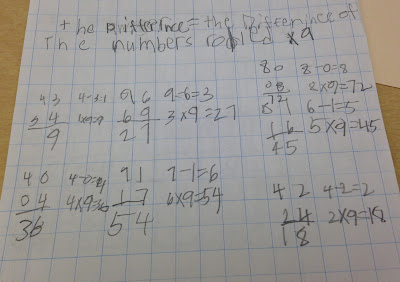 the Difference = the Difference of
The numbers rolled x9
43 4-3=1
34
9
96 9-6=3
69 3x9=27
27
80 8-0=8
08 8x9=72
72
6-1=5
16 5x9=45
45
40 4-0=4
04 4x9=36
36
71 7-1=6
17 6x9=54
54
42 4-2=2
24 2x9=18
18